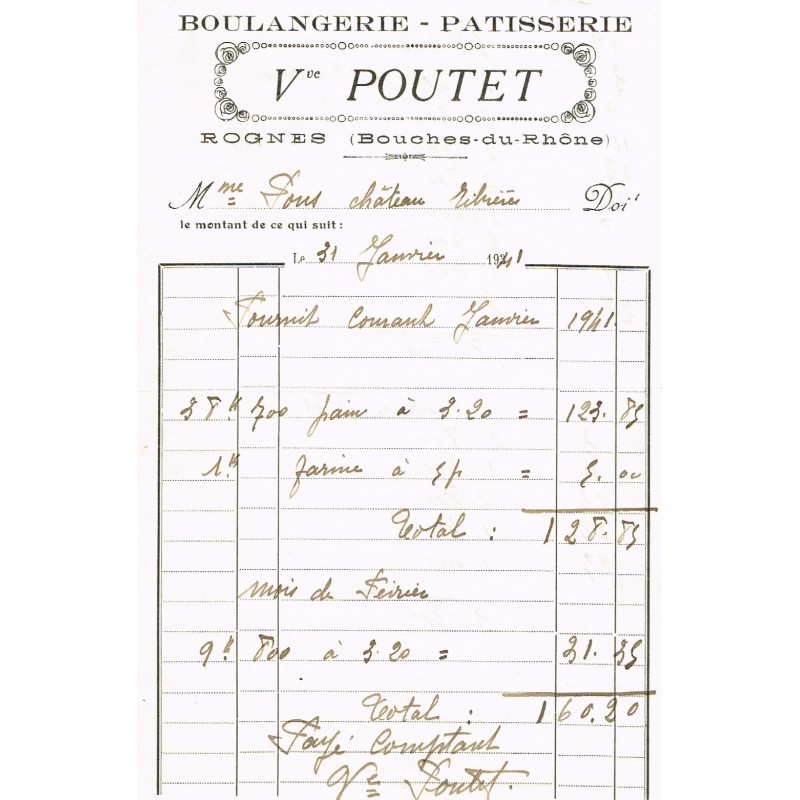 BOULANGERIE - PATISSERIE
Vve POUTET
ROGNES (Bouches-du-Rhône)
Mme Pons château Ribières Doit
le montant de ce qui suit :
Le 31 Janvier 1941
Fournit Courant Janvier 1941.
38k 700 pain à 3.20 = 123.85
1k farine à 5f = 5.00
Total : 128.85
mois de Février
9k 800 à 3.20 = 31.35
Total : 160.20
Payé Comptant
Ve Poutet.